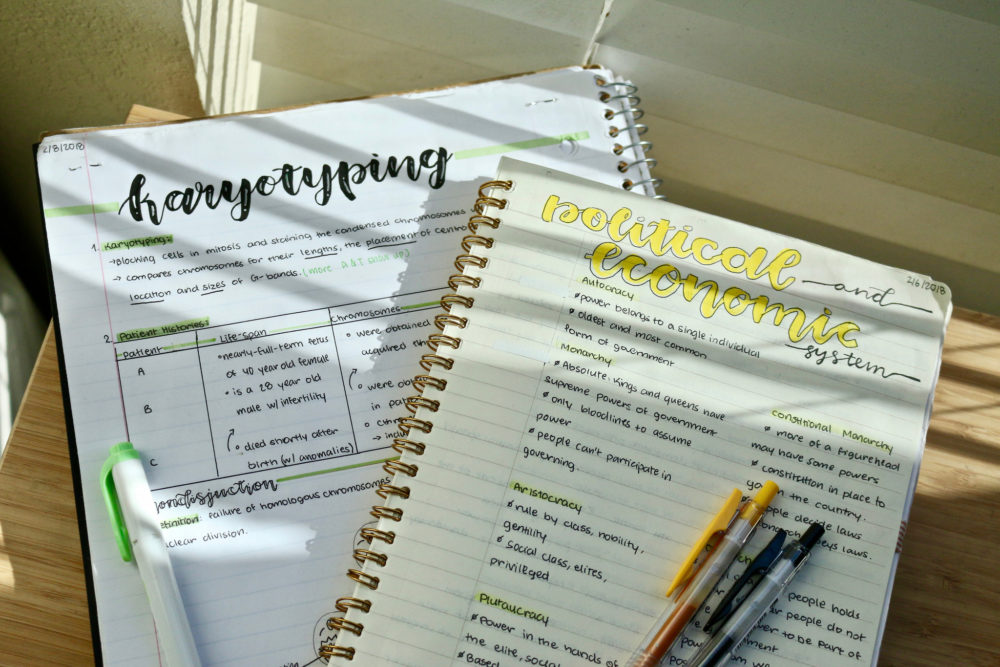 2/8/2018
karyotyping
1. Karyotyping:
→blocking cells in mitosis and staining the condensed chromosomes
→ compares chromosomes for their lengths, the placement of
location and sizes of G-bands. (more A & T show up)
2. Patient Histories:
patient
Life-span
chromosomes
A
•nearly-full-term fetus
of 40 year old female
B
• is a 28 year old
male w/ infertility
C
• died shortly after
birth (w/ anomalies)
• were obtained
acquired
• were
in
→
nondisjunction
: failure of homologous chromosomes
division.
2/6/2018
political and
economic system
Autocracy
power belongs to a single individual
oldest and most common
form of government
Monarchy
Absolute: Kings and queens have
supreme powers of government
only bloodlines to assume
power
people can't participate in
governing.
Aristocracy
rule by class, nobility,
gentility
Social class, elites,
privileged
Plutaucracy
Power in the hands of
the elite, social
Based
constitional Monarchy
more of a figurehead
may have some powers
constitution in place to
the country.
decide laws
laws.
people holds
people do not
to be part of